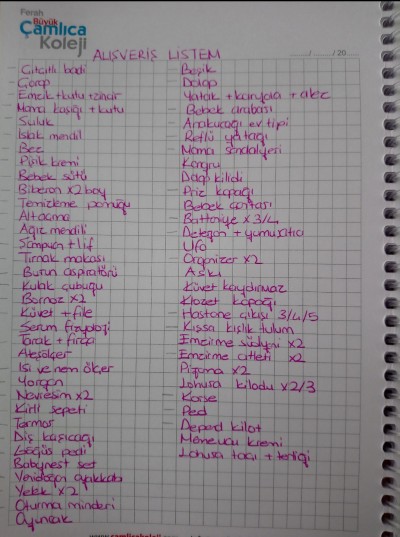 Ferah
Büyük
Çamlıca
Koleji
ALIŞVERİŞ LİSTEM
/ /20
Çıtçıtlı badi
Çorap
Emzik+kutu+zincir
Mama kaşığı + kutu
Suluk
Islak mendil
Bez
Pişik kremi
Bebek sütü
Biberon x2 boy
Temizleme pamuğu
Alt açma
Ağız mendili
Şampuan + lif
Tırnak makası
Burun aspiratörü
Kulak çubuğu
Bornoz x2
Küvet + file
Serum fizyoloji
Tarak + fırça
Ateşölçer
Isı ve nem ölçer
Yorgan
Nevresim x2
Kirli sepeti
Termos
Diş kaşıcağı
Göğüs pedi
Babynest set
Yenidoğan ayakkabı
Yelek x2
Oturma minderi
Oyuncak
Beşik
Dolap
Yatak + karyola + alez
Bebek arabası
Anakucağı ev tipi
Reflü yatağı
Mama sandalyesi
Kanguru
Dolap kilidi
Priz kapağı
Bebek çantası
Battaniye x 3/4
Deterjan + yumuşatıcı
Ufo
Organizer x2
Askı
Küvet kaydırmaz
Klozet kapağı
Hastane çıkışı 3/4/5
Kışsa kışlık tulum
Emzirme südyeni x2
Emzirme atleti x2
Pijama x2
Lohusa kilodu x2/3
Korse
Ped
Depend kilot
Meme ucu kremi
Lohusa tacı + terliği